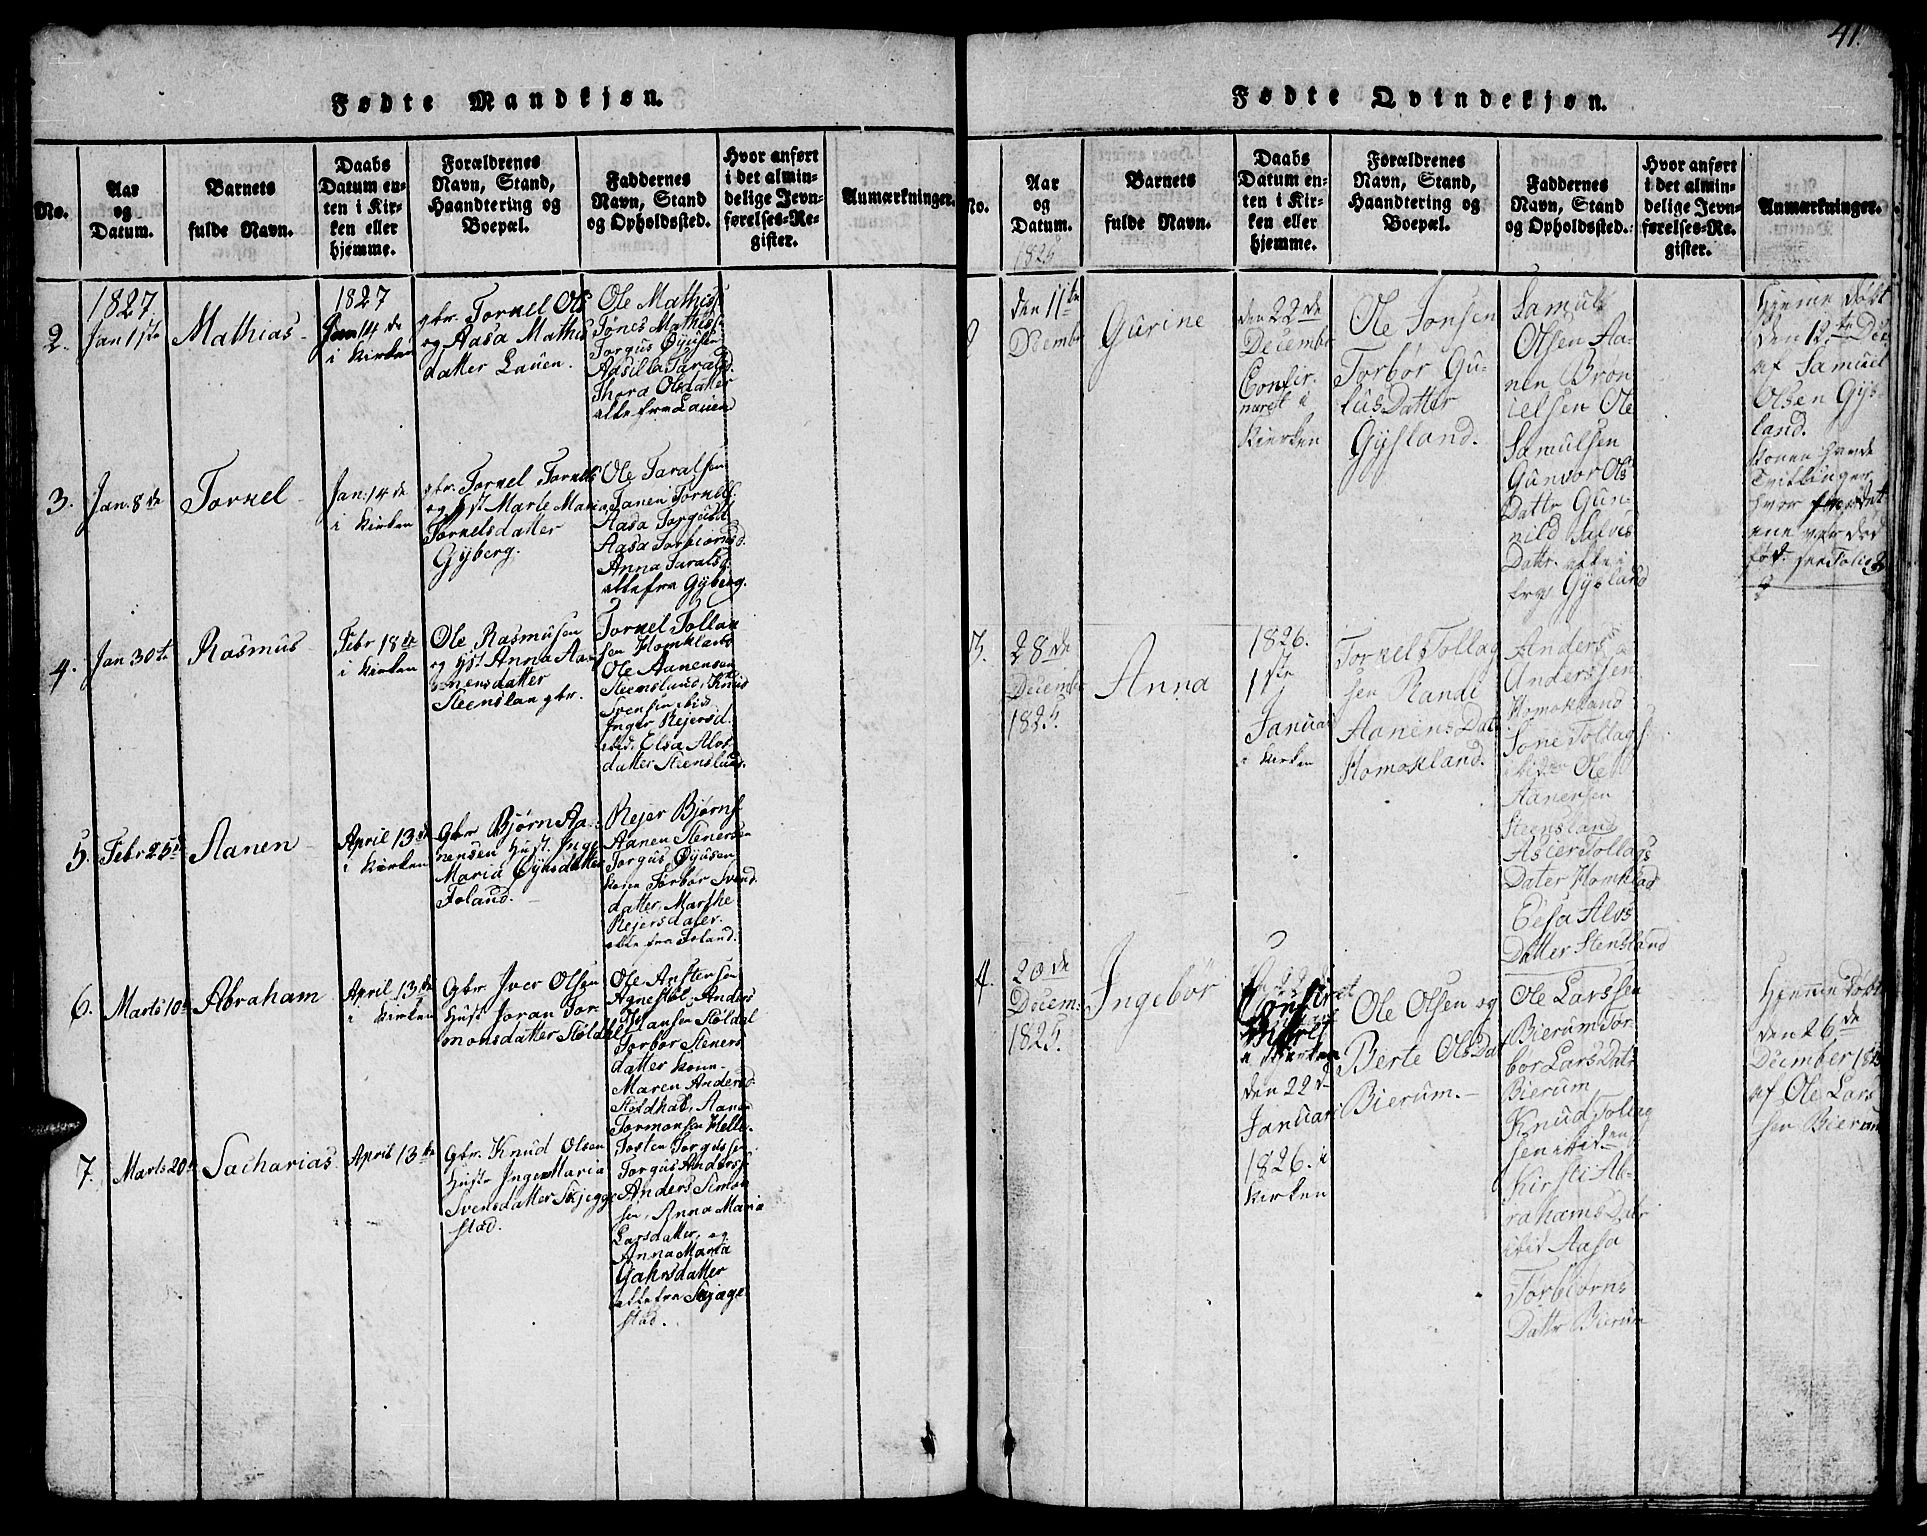 41.
Fødte Mandkjøn.
No.
Aar
og
Datum.
Barnets
fulde Navn.
Daabs
Datum en-
ten i Kir-
ken eller
hjemme.
Forældrenes
Navn, Stand,
Haandtering og
Boepæl.
Faddernes
Navn, Stand
og Opholdssted.
Hvor anført
i det almin-
delige Jevn-
førelses-Re-
gister.
Anmærkninger.
2.
1827
Jan 1ste
Mathias
1827
Jan 14de
i Kirken
gbr. Torkel Ols
og Aasa Mathis
datter Lauen.
Ole Mathiss
Tønes Mathiss
Torgus Øyusen
Aasilla Tarald.
Thora Olsdatter
alle fra Lauen
3.
Jan. 8de
Torkel
Jan. 14de
i Kirken
gbr. Torkel Torkels
og Hst Marte Maria
Torkelsdatter
Gyberg.
Ole Taralsen
Tanen Torkels.
Aasa Torgusd
Aasa Torbiørnsd.
Anna Taralsd.
alle fra Gyberg.
4.
Jan 30te
Rasmus
Febr 18de
i Kirken
Ole Rasmusen
og Hst Anna Aa-
nensdatter
Steenslan gbr.
Torkel Tollak
sen Homkland
Ole Aanensen
Steensland, Knud
Svensen ibid
Inger Rejersd.
ibid. Elsa Alvs
datter Steensland.
5.
Febr 25de
Aanen
April 13de
i Kirken
Gbr Bjørn Aa-
nensen Hust. Inge
Maria Øyusdatter
Foland.
Rejer Bjørns
Aanen Stenersen
Torgus Øyusen
kone Torbor Svend
datter, Marthe
Rejersdater.
alle fra Foland.
6.
Marts 10de
Abraham
April 13de
i Kirken
Gbr Iver Olsen
Hust Joran Tor-
monsdatter Støldal
Ole Anstensen
Agnestøl, Anders
Hansen Støldal
Torbor Steners
datter kone
Maren Andersd
Støldhal, Aanen
Tormonsen Helle.
7.
Marts 20de
Sacharias
April 13de
Gbr. Knud Olsen
Hust Inger Maria
Svensdatter Skjegge
stad.
Tosten Torgussen
Torgus Anderss.
Anders Simon
sen, Anna Maria
Larsdatter, og
Anna Maria
Gahrsdatter
alle fra Skjage
stad.
Fødte Qvindekjøn.
No.
Aar
og
Datum.
Barnets
fulde Navn.
Daabs
Datum en-
ten i Kir-
ken eller
hjemme.
Forældrenes
Navn, Stand,
Haandtering og
Boepæl.
Faddernes
Navn, Stand
og Opholdssted.
Hvor anført
i det almin-
delige Jevn-
førelses-Re-
gister.
Anmærkninger.
1825
den 11te
December
Gurine
den 22de
December
Confir-
meret i
Kierken
Ole Jonsen
Torbor Gu-
lus Datter
Gysland.
Samuls
Olsen Aa-
nen Brøn
ielsen Ole
Samulsen
Gunvor Ols
Datter Gun-
nild Salvis
Datter. alle i
Gysland
Hjeme døbt
den 12te Dec
af Samuel
Olsen Gys-
land.
Konen havde
Tvillinger
hvor
ene var død
fød. see Folio
3.
28de
December
1825.
Anna
1826.
1ste
Januar
i Kirken
Torkel Tollag
sen Randi
Aanens Dat
Homokland.
Anders
Anderssen
Homokland
Tone Tollags
ibid Ole
Aanensen
Steensland
Asier Tollags
Dater Homklad
Elisa Alvs
Datter Stensland
4.
20de
Decem.
1825.
Ingebor
Confir
meret
i Kierken
den 22d
Januari
1826. i
Kirken
Ole Olsen og
Berte Ols Dat
Bierum.
Ole Larssen
Bierum Tor-
bor Lars Datr
Bierum
Knud Tollag
sen ibiden
Kirsti Ab-
rahams Datr
ibid Aasa
Torbiørns
Datr Bierum
Hjemme døbt
den 26de
December 1825
af Ole Lars
sen Bierum